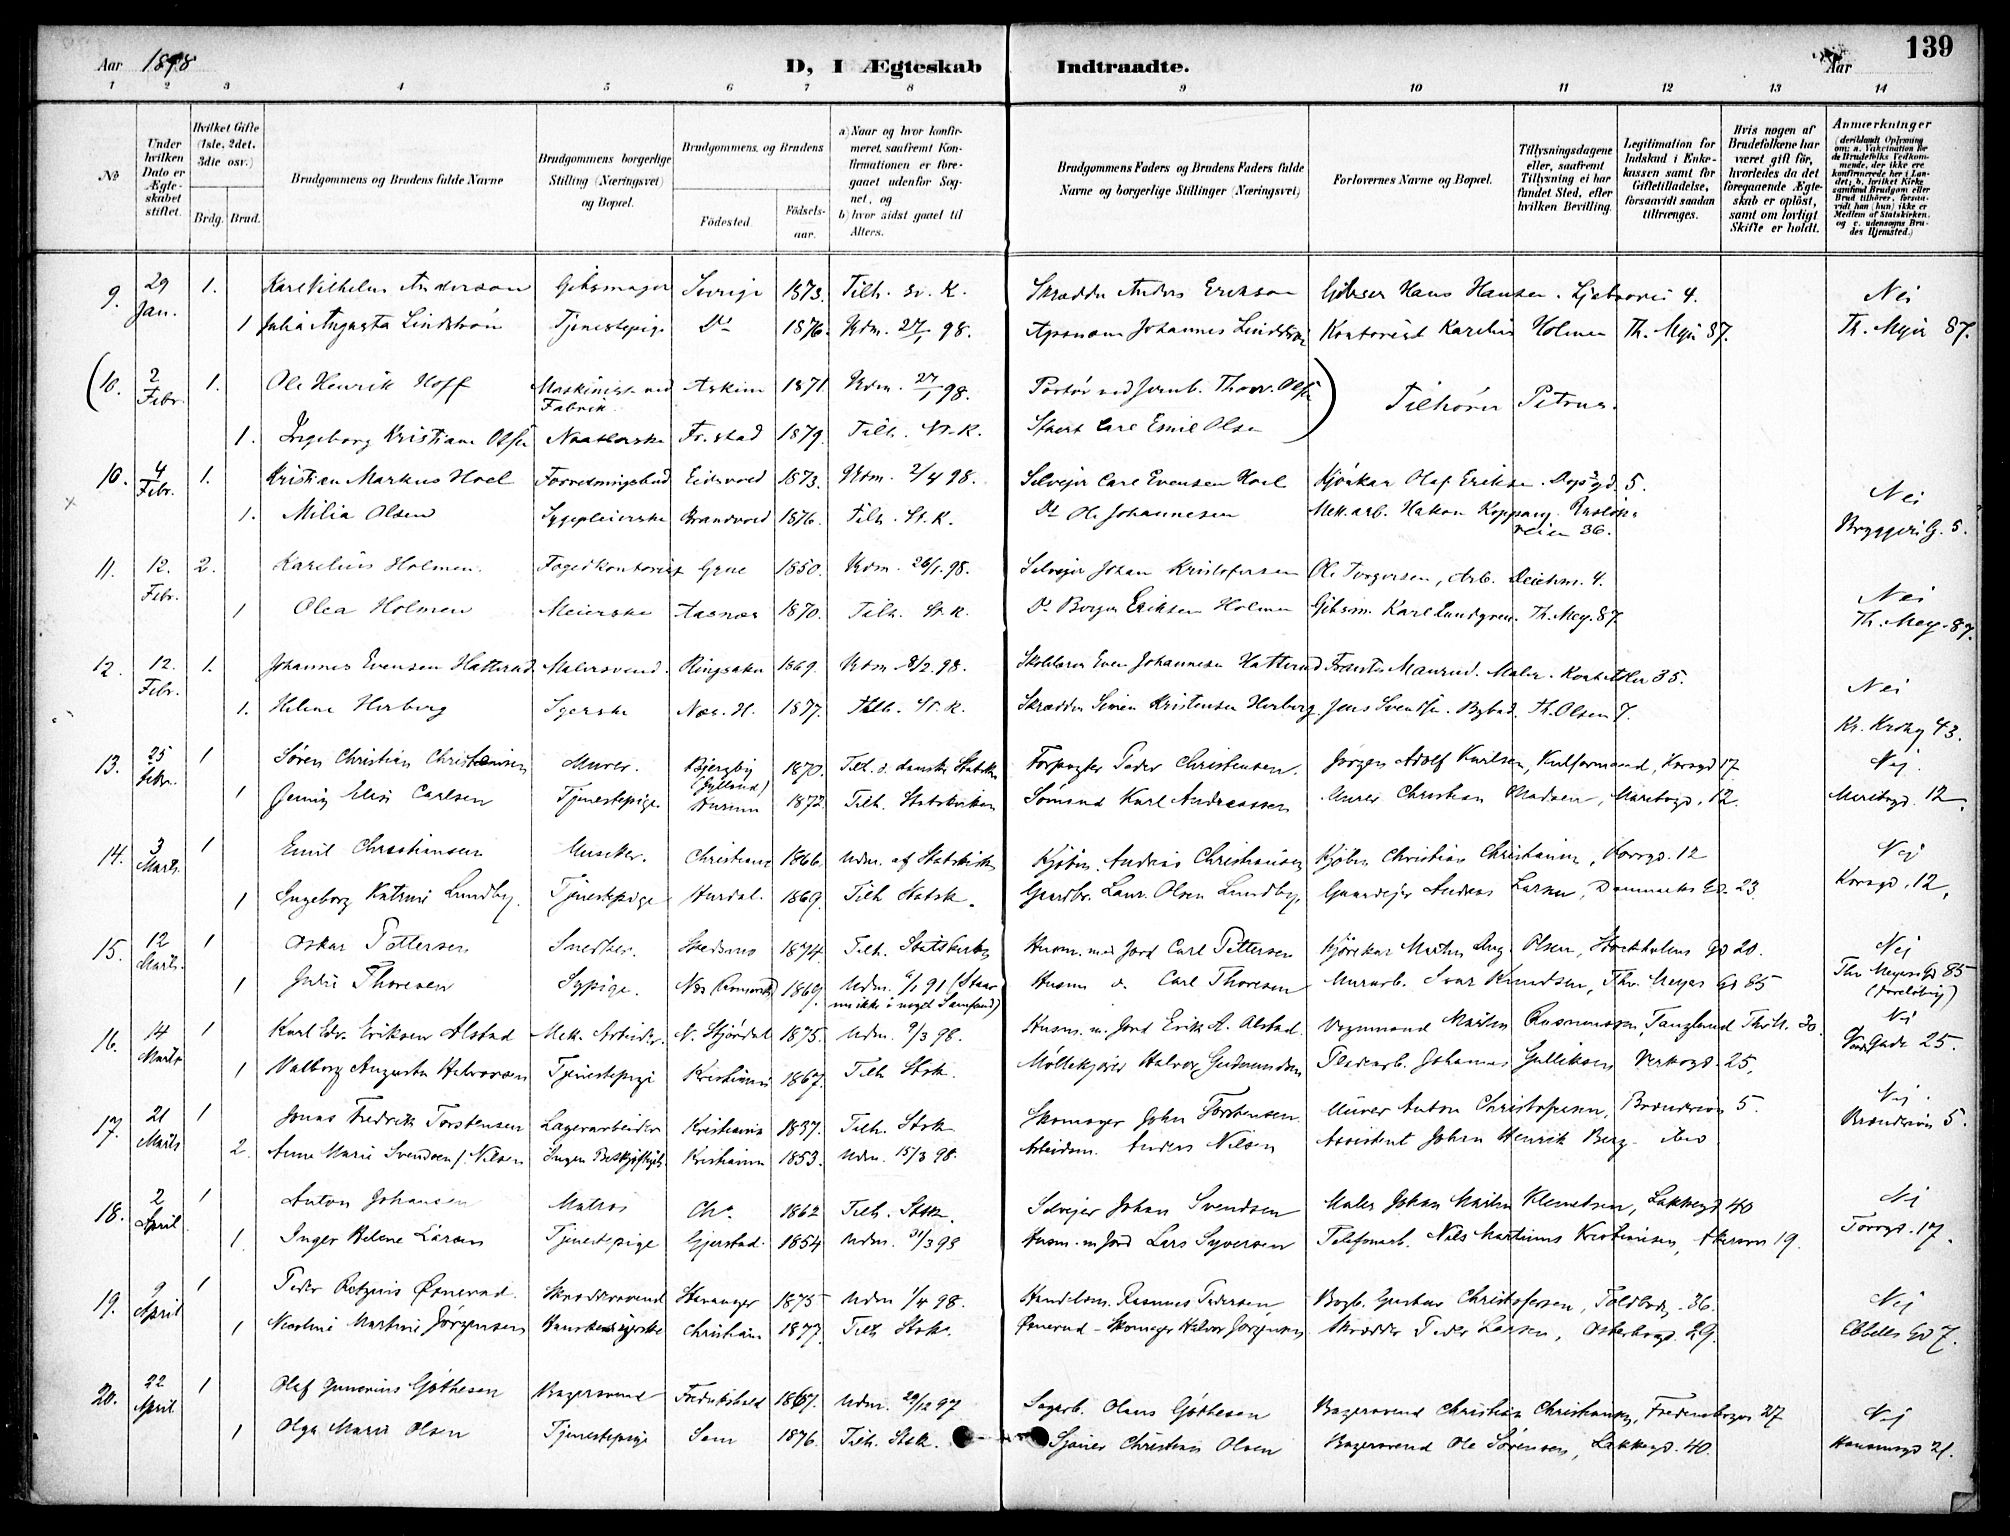 Aar 1898
D, I Ægteskab Indtraadte.
Aar
139
1 2 3 4 5 6 7 8 9 10 11 12 13 14
No
Under hvilken Dato er Ægteskabet stiftet.
Hvilket Gifte (1ste, 2det, 3die osv.)
Brdg. Brud.
Brudgommens og Brudens fulde Navne
Brudgommens borgerlige Stilling (Næringsvei) og Bopæl.
Brudgommens, og Brudens
Fødested.
Fødselsaar.
a) Naar og hvor konfirmeret, saafremt Konfirmationen er foregaaet udenfor Sognet, og
b) hvor sidst gaaet til Alters.
Brudgommens Faders og Brudens Faders fulde Navne og borgerlige Stillinger (Næringsvei)
Forlovernes Navne og Bopæl.
Tillysningsdagene eller, saafremt Tillysning ei har fundet Sted, efter hvilken Bevilling.
Legitimation for Indskud i Enkekassen samt for Giftetilladelse, forsaavidt saadan tiltrænges.
Hvis nogen af Brudefolkene har været gift før, hvorledes da det foregaaende Ægteskab er opløst, samt om lovligt Skifte er holdt.
Anmærkninger (deriblandt Oplysning om: a. Vakcination for de Brudefolks Vedkommende, der ikke ere konfirmerede her i Landet; b. hvilket Kirkesamfund Brudgom eller Brud tilhører, forsaavidt han (hun) ikke er Medlem af Statskirken, og c. udensogns Brudes Hjemsted.)
9. 29 Jan. 1. Karl Vilhelm Anderson Gibsmager Sverige 1873. Tilh. sv. K. Skrædder Anders Erikson Gibser Hans Hansen. Ljabrovei 4. Nei
1 Julia Augusta Lindström Tjenestepige Do 1876. Udm. 27/1 98. Johannes Lindström Kontorist Karelius Holmen Th. Myr 87. Th. Myr 87.
(10. 2 Febr. 1. Ole Henrik Hoff Maskinist ved Fabrik. Askim 1871. Udm. 27/1 98. Portør ved Jernb. Thorv. Olsen) Tilhører Petrus.
1. Ingeborg Kristiane Olsen Fr.stad 1879. Tilh. St. K. Carl Emil Olsen
10. 4 Febr. 1. Kristian Markus Hoel Forretningsbud Eidsvold 1873. Udm. 2/4 98. Selveier Carl Evensen Hoel Kjörkar Olaf Eriksen 5. Nei
1. Milia Olsen Sygepleierske Brandvold 1876. Tilh. St. K. Do Ole Johannesen Mek. arb. Hakon Koppang. veien 36. Bryggerig. 5.
11. 12. Febr. 2. Karelius Holmen. Fogedkontorist Grue 1850. Udm. 26/1. 98. Selveier Johan Kristofersen Ole Torgersen, Arb. Deichm. 4. Nei
1 Olea Holmen Meierske Aasnes 1870. Tilh. St. K. Do Borger Eriksen Holmen Gibsm. Karl Lundgren. Th. Mey. 87. Th. Mey. 87.
12. 12. Febr. 1. Johannes Evensen Hatterud Malersvend. Ringsaker 1869. Udm 8/2. 98. Even Johannesen Hatterud Maurud. Maler. 35. Nei
1. Helene Herberg Syerske Nes. H. 1877. Tilh. St. K. Skrædder Simen Kristensen Herberg. Jens Svendsen. Bybud. Th. Olsen 7. Kr. Krohg 43.
13. 25 Febr. 1 Søren Christian Christensen Murer. Bjergby (Jylland) 1870. Tilh. d. danske Statsk. Forpagter Peder Christensen. Jørgen Adolf Karlsen, Kulformand, Korsgd 17 Nej.
1 Jenny Elise Carlsen Tjenestepige Hurum 1872. Tilh. Statskirken Sømand Karl Andreassen Murer Christian Madsen, Maribogd. 12. Maribogd. 12.
14. 3 Marts. 1 Emil Christiansen Musiker. Christiania 1866. Udm. af Statskirken Kjøbm. Andreas Christiansen Kjøbm Christian Christiansen, Korsgd. 12 Nej
1 Ingeborg Katrine Lundby. Tjenestepige Hurdal. 1869. Tilh Statsk. Gaardbr. Laur. Olsen Lundby. Gaardejer Andreas Larsen, Danmarks Gd. 23. Korsgd. 12.
15. 12 Marts. 1 Oskar Pettersen Snedker. Skedsmo 1874. Tilh. Statskirken Husm. med Jord Carl Pettersen Kjørekar Martin Aug. Olsen, Stockholms gd 20. Nej
1 Julie Thoresen Sypige. Nes Romerike 1869. Udm. 6/1 91 (Staar nu ikke i noget Samfund) Husm d. Carl Thoresen Murarb. Ivar Knudsen, Thv. Meyers Gd 85 Thv. Meyers Gd 85 (foreløbig)
16. 14 Marts 1 Karl Edv. Eriksen Alstad Mek. Arbeider. N. Stjørdal 1875. Udm. 9/3 98. Husm. m. Jord Erik A. Alstad. Vognmand Martin Rasmussen, 30. Nej
1 Valborg Augusta Halvorsen Tjenestepige Kristiania 1867. Tilh Stsk. Møllekjører Halvor Gudmundsen Johannes Gulliksen Verksgd. 25, Gade 25.
17. 21 Marts 1 Jonas Fredrik Torstensen Lagerarbeider Kristiania 1837. Tilh. Stsk Skomager John Torstensen. Murer Anton Christofersen, 5. Nej.
2. Anne Marie Svendsen f. Nilsen Kristiania 1853. Udm. 15/3 98. Arbeidsm. Anders Nilsen Assistent Johan Henrik Berg. ibid 5.
18. 2 April. 1 Anton Johansen Matros Chr. 1862 Tilh. Stsk. Selvejer Johan Svendsen Maler Johan Martin Klemetsen, Lakkegd 40 Nej
1. Inger Helene Larsen Tjenestepige Gjerstad. 1854 Udm. 31/3 98 Husm. m Jord Lars Syversen Telefonarb. Nils Martinius Kristiansen, Akersvn 19. Torvgd. 17.
19. 9 April 1 Peder Øsnerud. Skræddersvend Stavanger 1875 Udm 1/4 98. Handelsm. Rasmus Pedersen Bogb. Gustav Christofersen, Toldbodg. 36. Nej
1 Nicoline Martine Jørgensen Hanskesyerske Christiania 1877. Tilh Stsk. Øsnerud - Skomager Halvor Jørgensen Skrædder Peder Larsen, Osterhogd. 29. Ebbells Gd 7.
20. 22 April 1 Olaf Gunerius Gøthesen Bagersvend Fredrikshald 1867. Udm. 29/12 97 Sagarb. Olaus Gøthesen Bagersvend Christian Christiansen, Fredensborgvn 27 Nej
1 Olga Marie Olsen Tjenestepige Sem 1876. Tilh. Stsk. Christian Olsen Bagersvend Ole Sørensen, Lakkegd. 40. Hausmsgd 21.